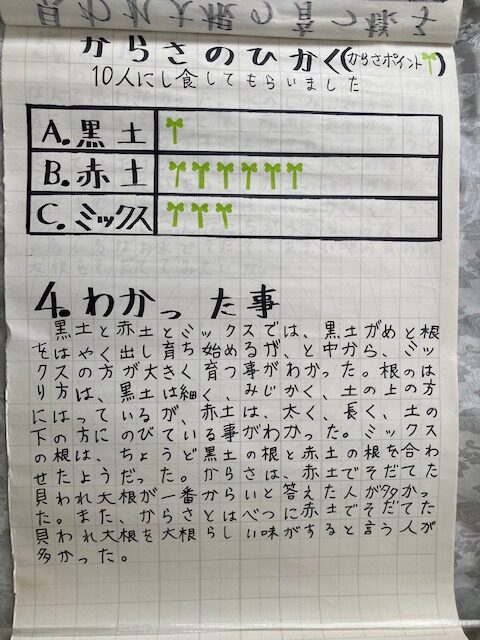 貝われ大根の育つ様子
からさのひかく(からさポイント)
10人にし食してもらいました
A.黒土
B.赤土
C.ミックス
4.わかった事
黒土と赤土とミックスでは、黒土がめと根
をはやく出し育ち始めるが、と中から、ミッ
クスの方が大きく育つ事がわかった。根のは
り方は、黒土は細く、みじかく、土の上の方
にはっているが、赤土は、太く、長く、土の
下の方にのびている事がわかった。ミックス
の根は、ちょうど黒土の根と赤土の根を合わ
せたようだった。からさは、赤土でそだてた
貝われ大根が一番からいと答えた人が多かっ
た。また、からさとはべつに赤土でそだてた
貝われ大根を大根らしい味がすると言う人が
多かった。